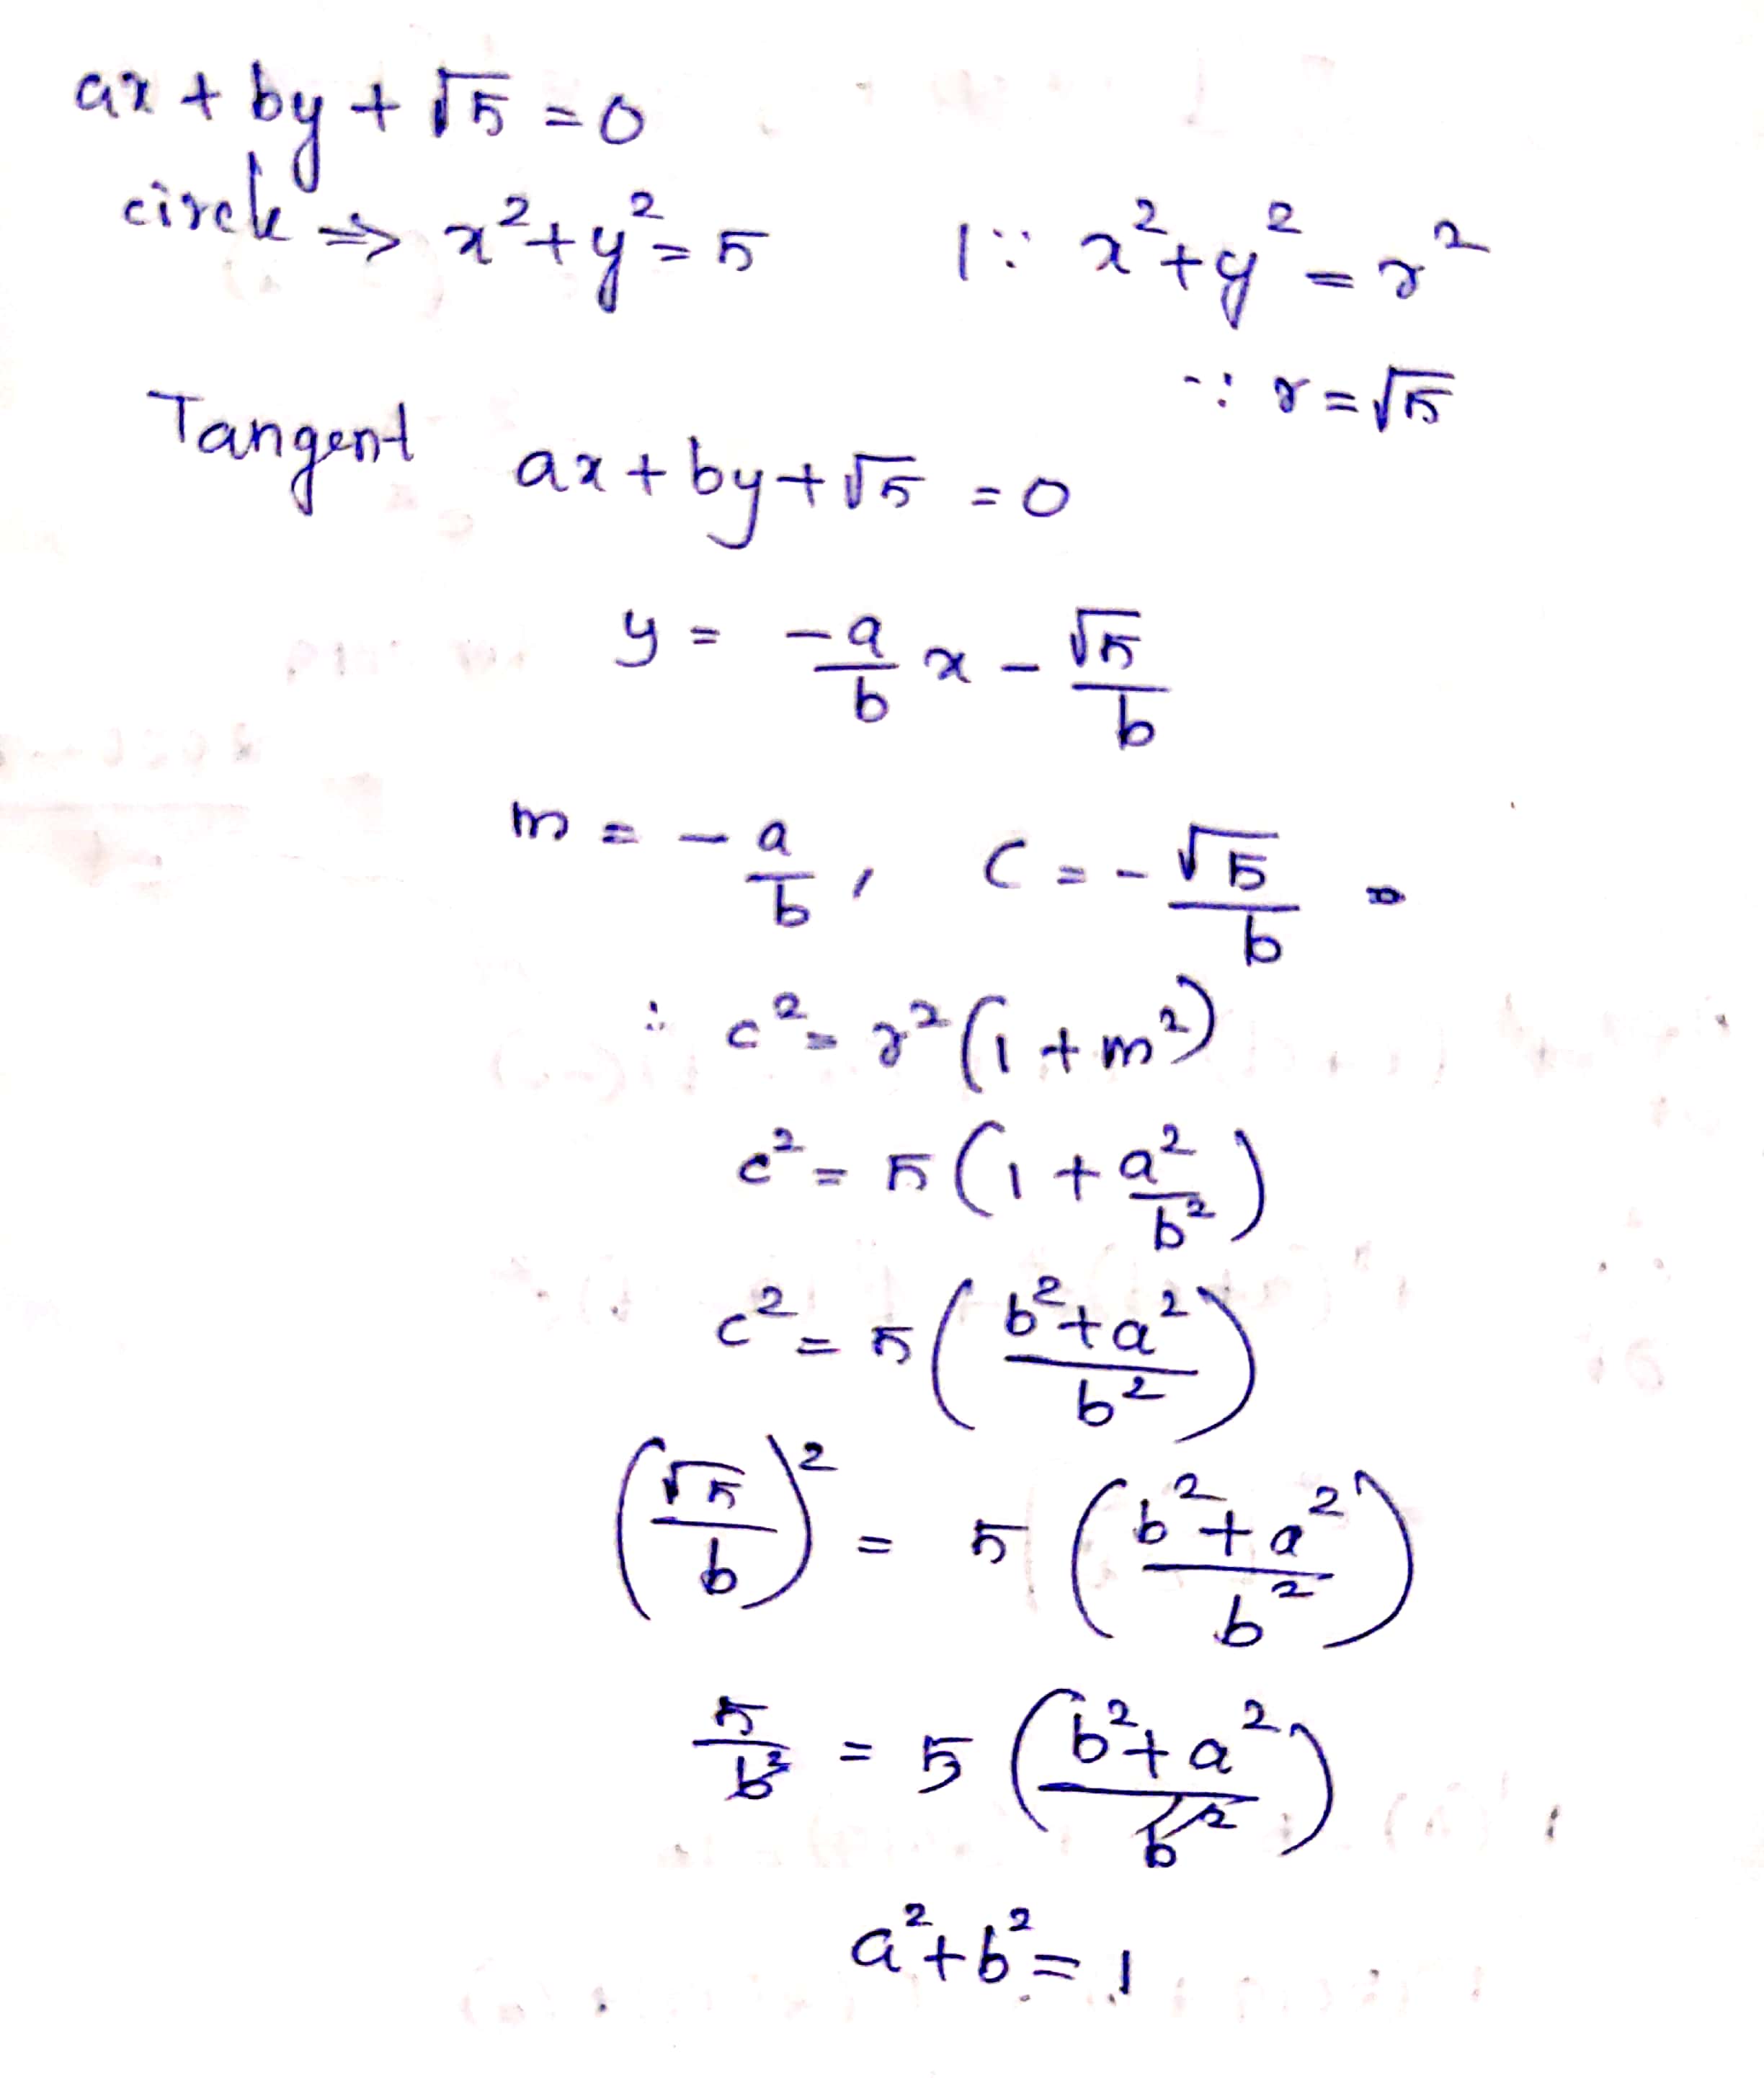 ax + by + √5 = 0
circle ⇒ x² + y² = 5 | ∵ x² + y² = r²
∵ r = √5
Tangent ax + by + √5 = 0
y = -a/b x - √5/b
m = -a/b, C = -√5/b
∴ c² = r²(1 + m²)
c² = 5(1 + a²/b²)
c² = 5((b² + a²)/b²)
(√5/b)² = 5((b² + a²)/b²)
5/b² = 5((b² + a²)/b²)
a² + b² = 1